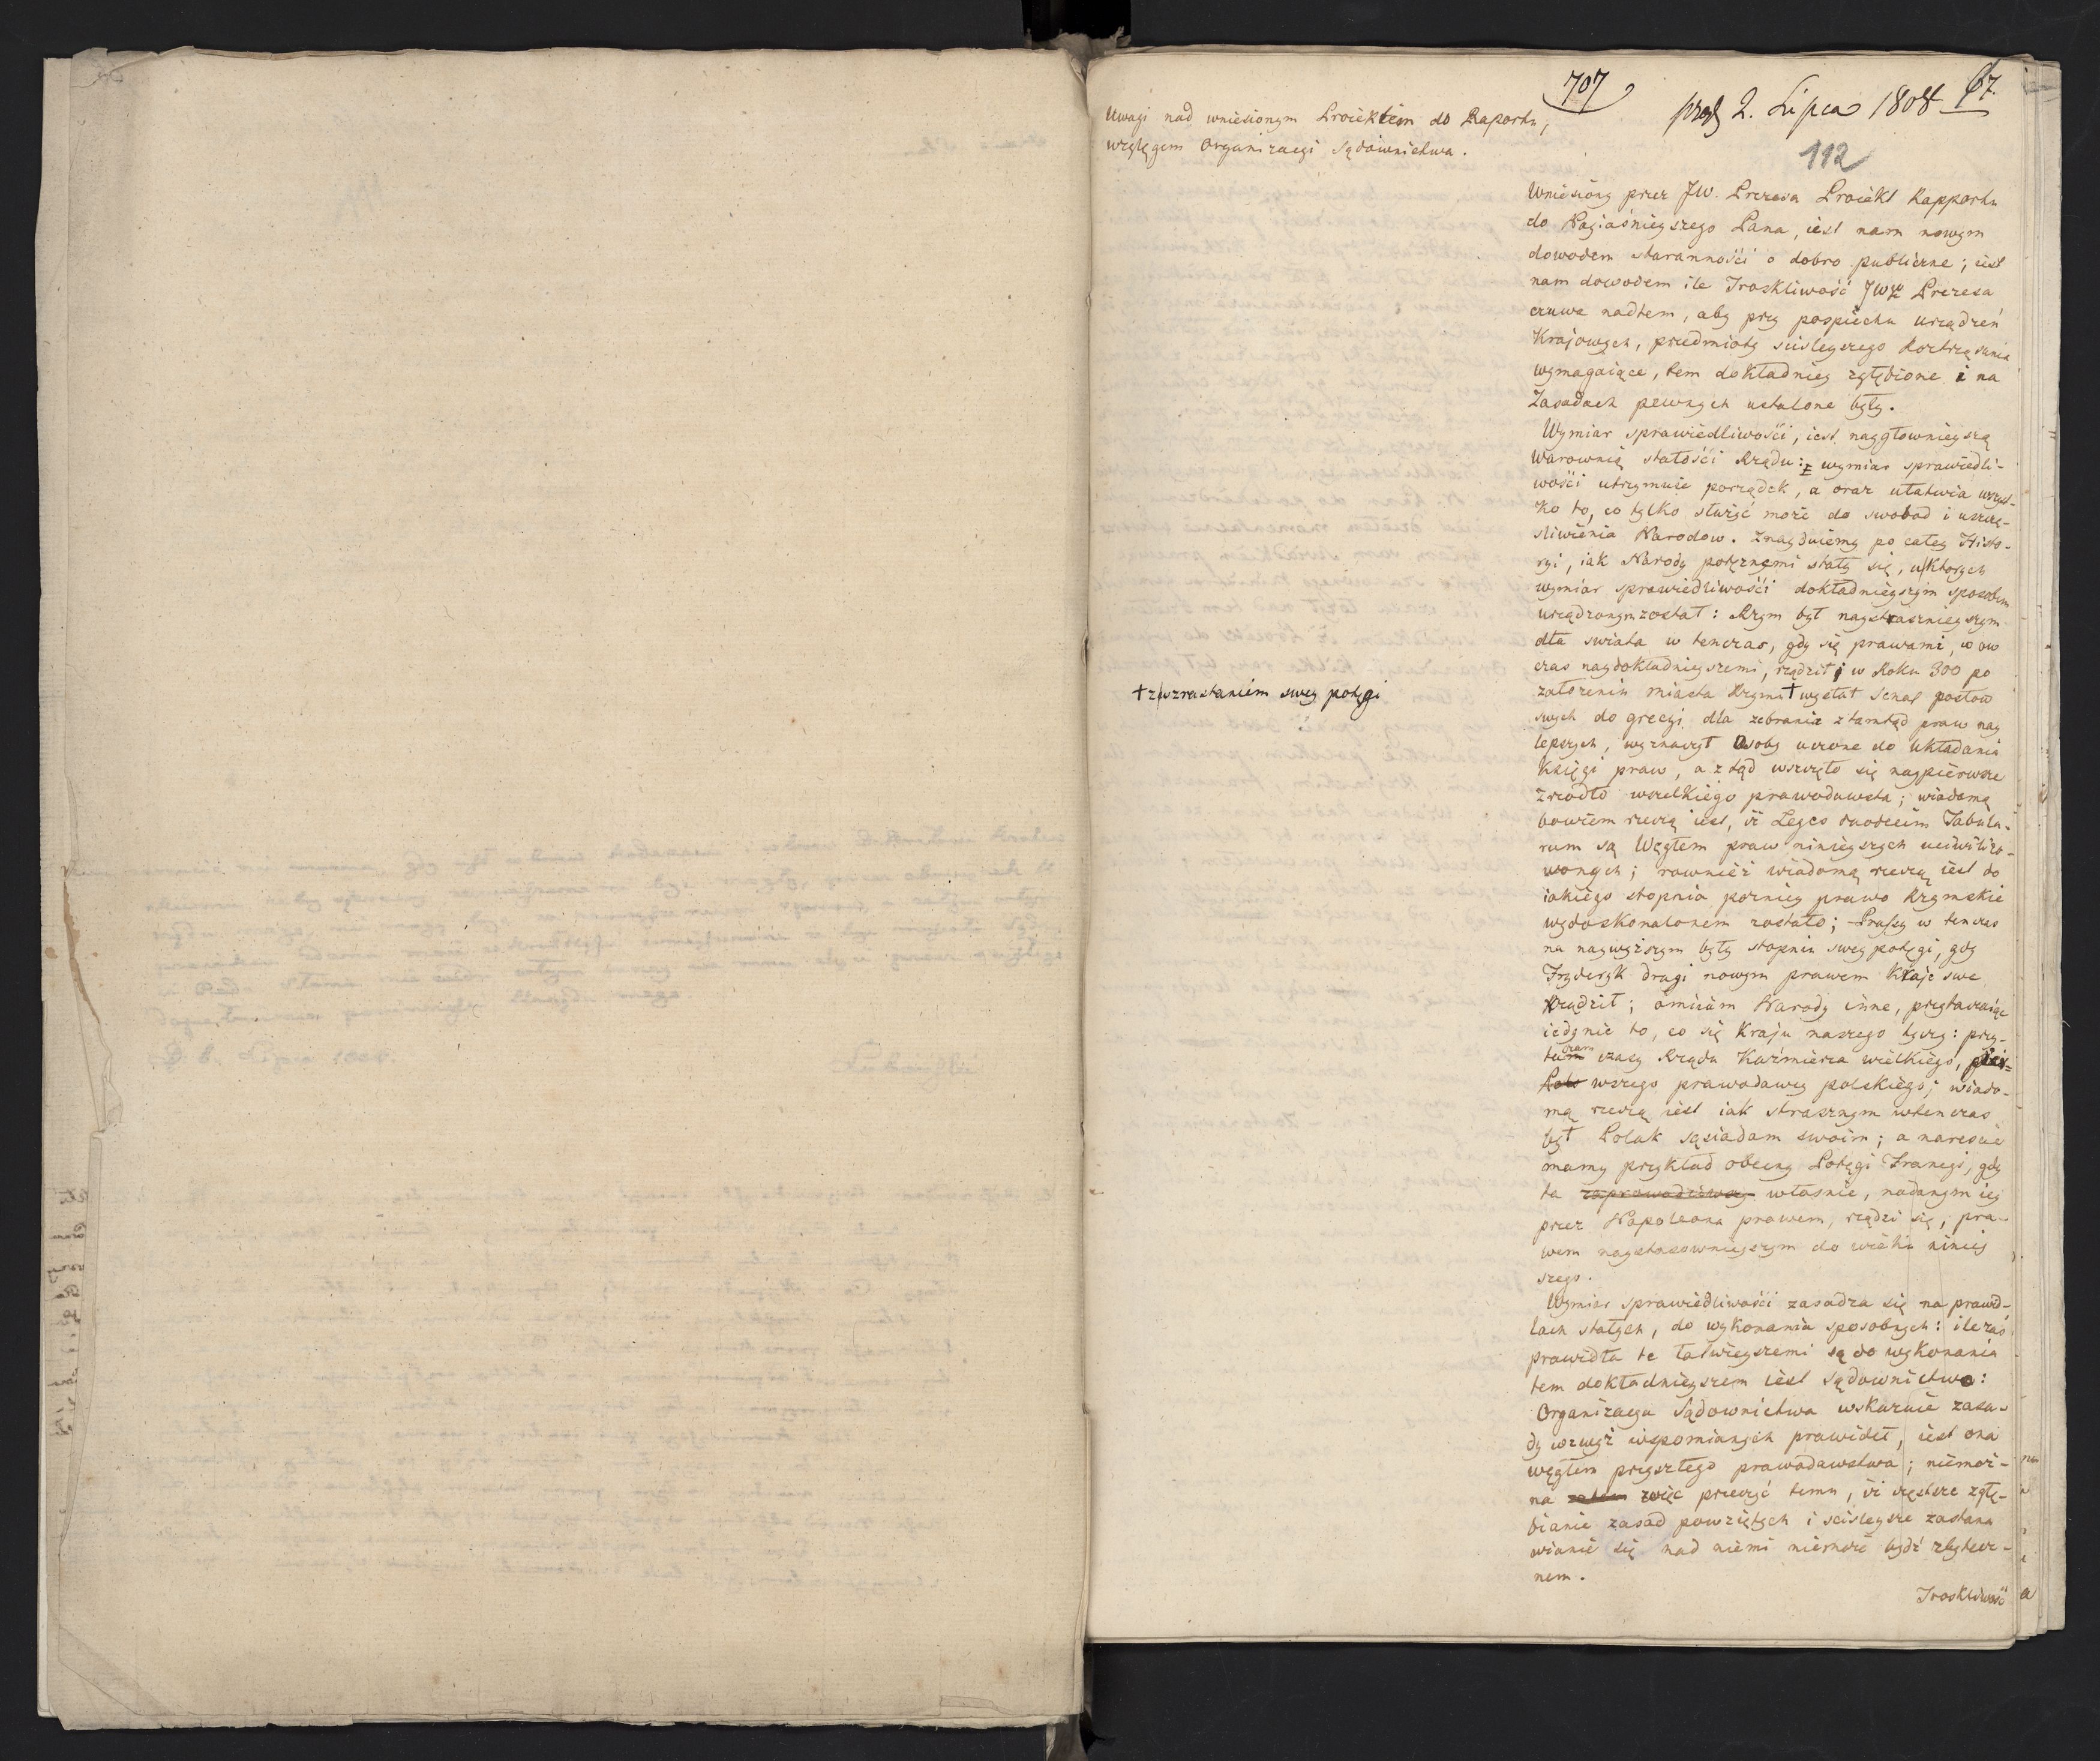 707
67.
prez 2. Lipca 1808
112
Uwagi nad wniesionym Proiektem do Raportu,
względem Organizacyi Sądownictwa.
Wniesiony przez JW. Prezesa Proiekt Rapportu
do Nayiaśnieyszego Pana, iest nam nowym
dowodem staranności o dobro publiczne; iest
nam dowodem ile Troskliwość JWgo Prezesa
czuwa nadtem, aby przy pospiechu urządzeń
Krajowych, przedmioty scisleyszego Roztrząsania
wymagaiące, tem dokładniey zgłębione i na
Zasadach pewnych ustalone były.
Wymiar sprawiedliwości, iest naygłownieyszą
Warownią stałości Rządu: wymiar sprawiedli-
wości utrzymuie porządek, a oraz ułatwia wszyst-
ko to, co tylko służyć może do swobod i uszczę-
sliwienia Narodow. Znayduiemy po całey Histo-
ryi, iak Narody potężnemi stały się, u ktorych
wymiar sprawiedliwości dokładnieyszym sposobem
urządzonym został: Rzym był naystrasznieyszym
dla swiata w tenczas, gdy się prawami, w ow
czas naydokładnieyszemi, rządził; w Roku 300 po
założeniu miasta Rzymu + wysłał Senat posłow
+ z wzrastaniem swey potęgi
swych do grecyi dla zebrania ztamtąd praw nay
lepszych, wyznaczył Osoby uczone do układania
Księgi praw, a ztąd wszczęło się naypierwsze
Zrzodło wszelkiego prawodawstwa; wiadomą
bowiem rzeczą iest, iż Leges duodecim Tabula-
rum są Węgłem praw ninieyszych ucywilizo-
wanych; rownież wiadomą rzeczą iest do
iakiego stopnia pozniey prawo Rzymskie
wydoskonalonem zostało; Prussy w tenczas
na naywyższym były stopniu swey potęgi, gdy
Fryderyk drugi nowym prawem Kraje swe
Rządził; omiiam Narody inne, przytaczaiąc
iedynie to, co się Kraju naszego tyczy: przy-
taczam czasy Rządu Kaźmierza wielkiego, pier-
wszego prawodawcy polskiego; wiado-
mą rzeczą iest iak strasznym wtenczas
był Polak sąsiadom swoim; a nareście
mamy przykład obecny Potęgi Francyi, gdy
ta zaprowadziwszy własnie, nadanym iey
przez Napoleona prawem, rządzi się, pra-
wem naystosownieyszym do wieku niniey
szego.
Wymiar sprawiedliwości zasadza się na prawid-
łach stałych, do wykonania sposobnych: ile zaś
prawidła te łatwieyszemi są do wykonania
tem dokładnieyszem iest sądownictwo:
Organizacya Sądownictwa wskazuie zasa-
dy wzwyż wspomianych prawideł, iest ona
węgłem przyszłego prawodawstwa; niemoż-
na więc przeczyć temu, iż częstsze zgłę-
bianie zasad powziętych i scisleysze zastana
wianie się nad niemi niemoże bydź zbytecz-
nem.
Troskliwość